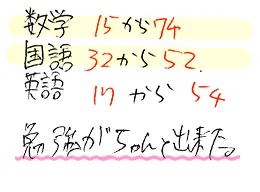 数学 15から74
国語 32から52.
英語 17 から 54
勉強がちゃんと出来た。